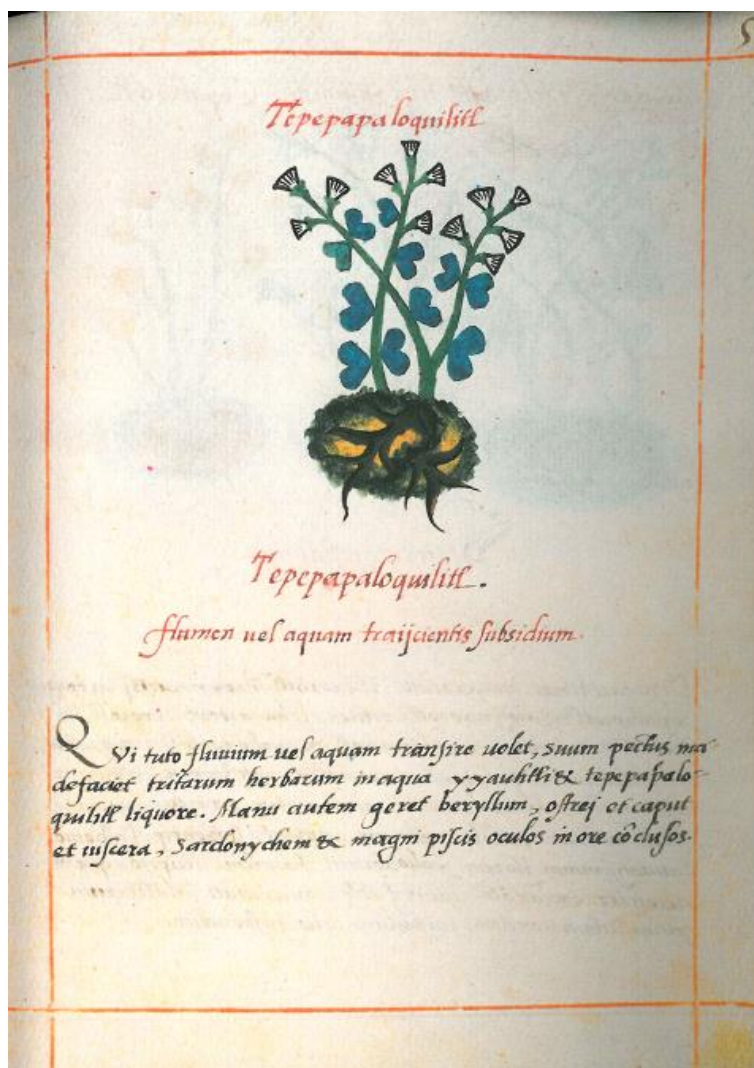 Tepepapaloquilitl
Tepepapaloquilitl.
flumen vel aquam traijcientis subsidium.
QVi tuto fluvium uel aquam transire uolet, suum pectus ma-
defaciet tritarum herbarum in aqua yyauhtli & tepepapalo-
quilitl liquore. Manu autem geret beryllum, ostrej et caput
et viscera, sardonychem & magni piscis oculos in ore cõclusos.